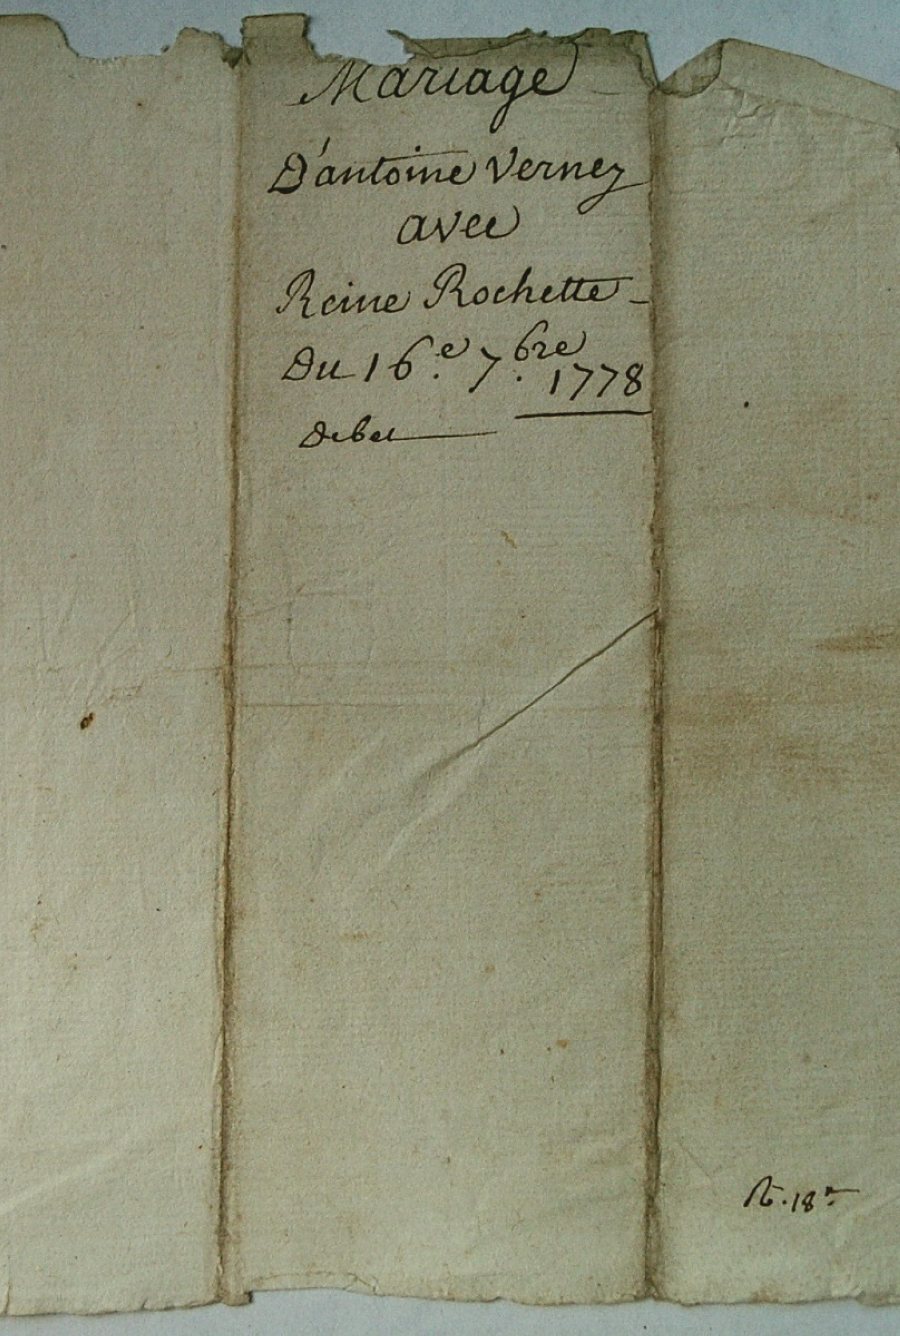 Mariage
D'antoine Verney
avec
Reine Rochette
Du 16.e 7.bre 1778